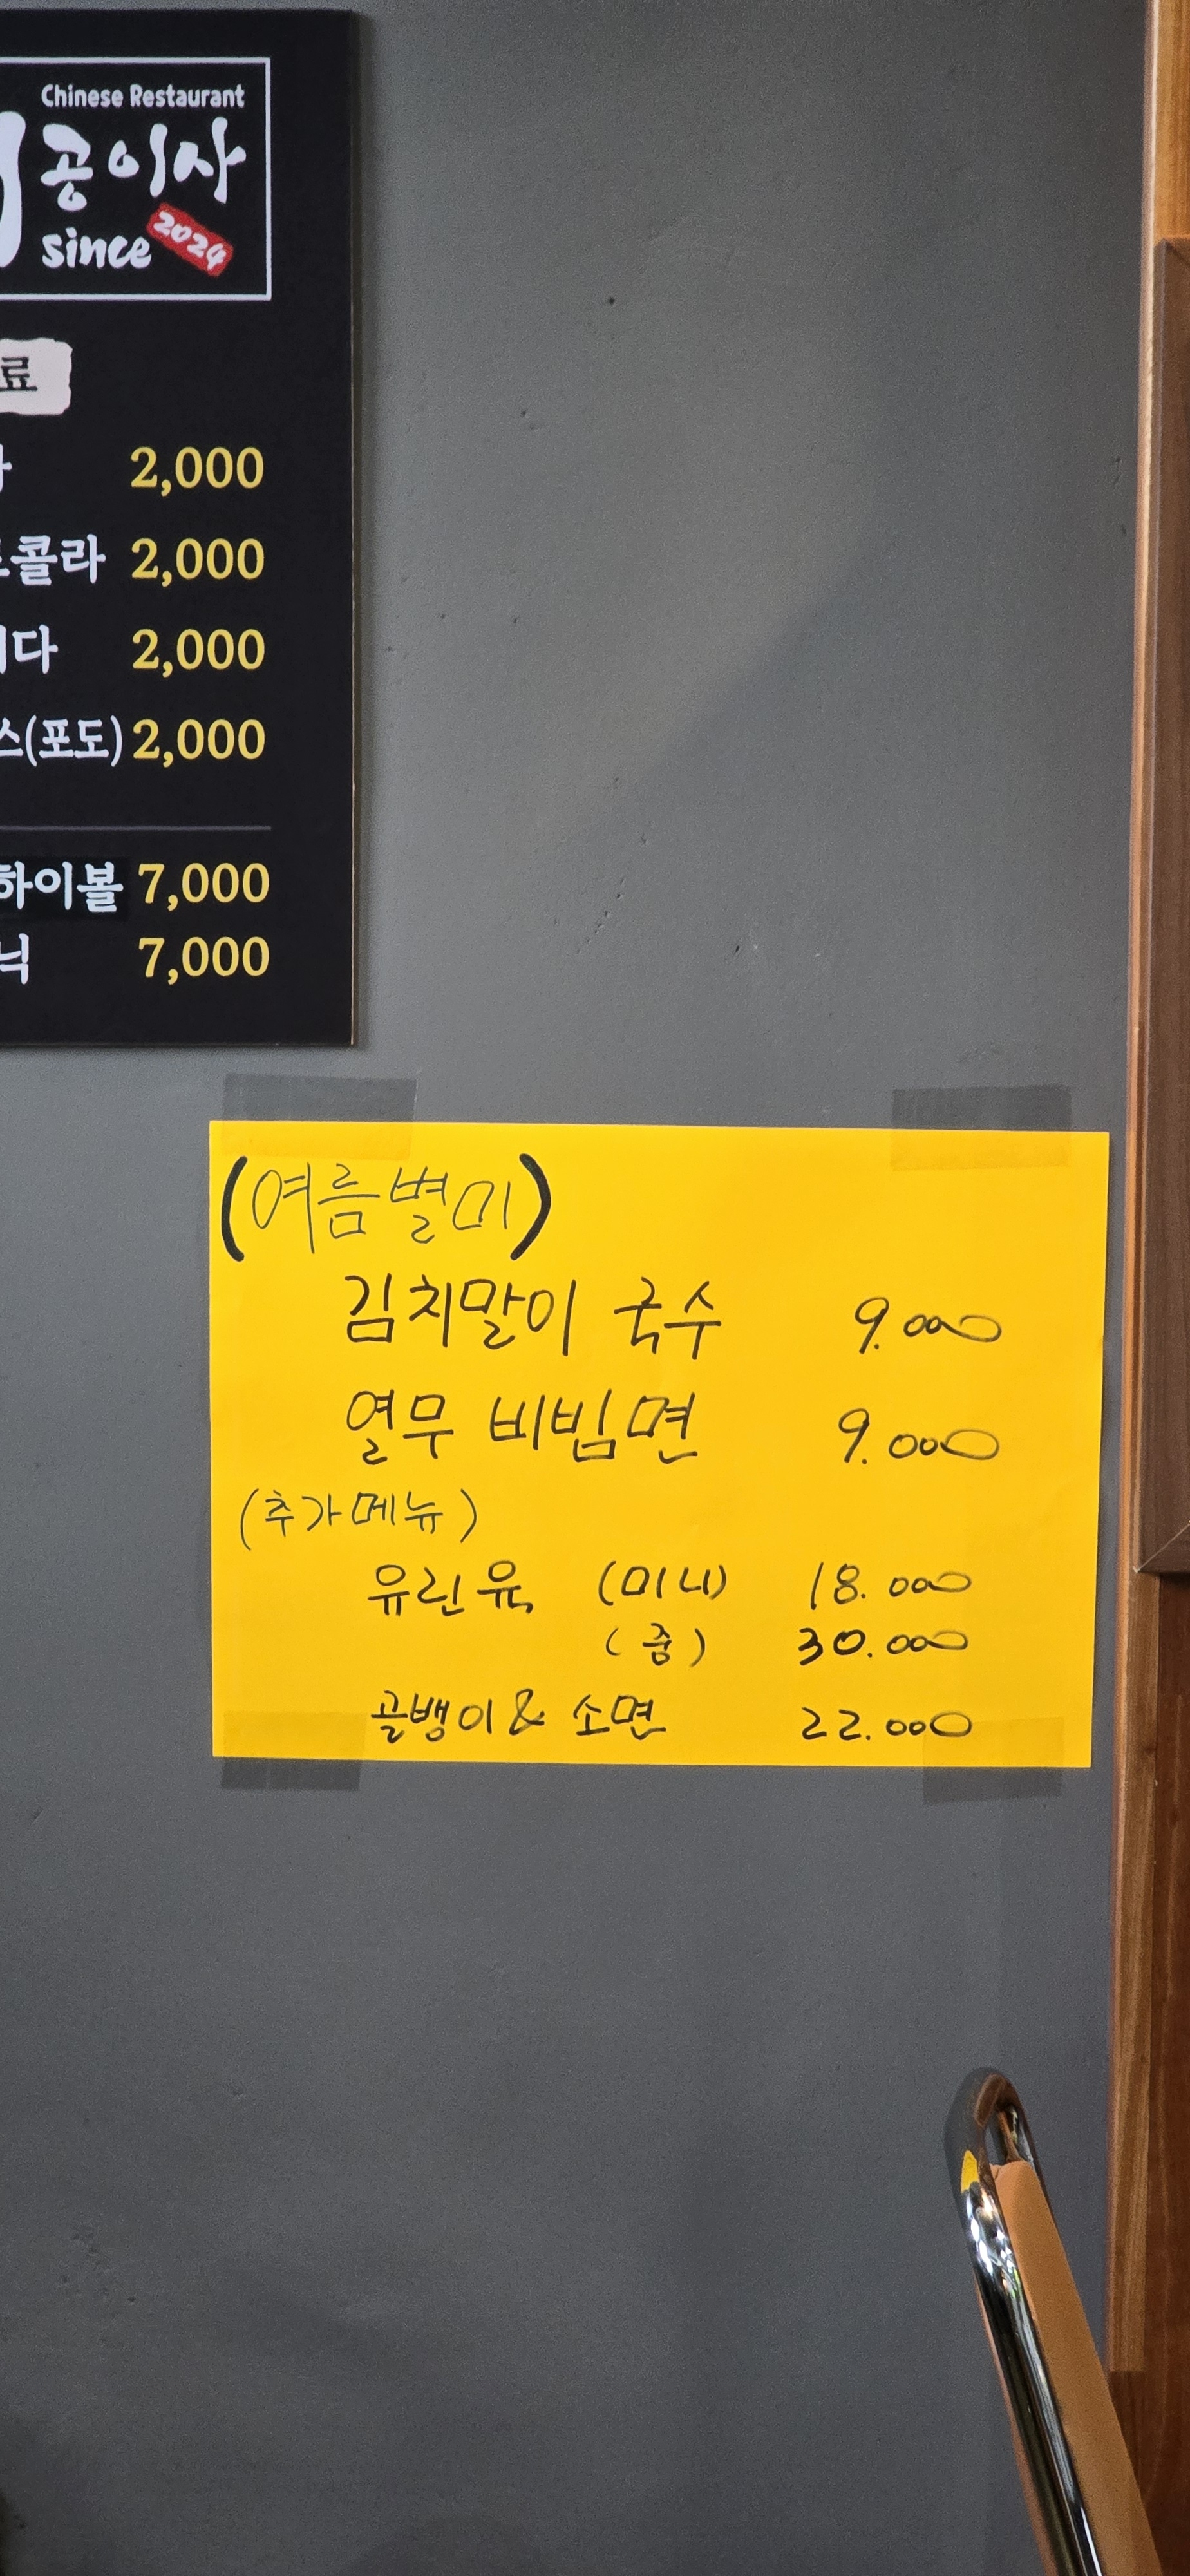 Chinese Restaurant
공이사
since 2024
료
2,000
콜라 2,000
다 2,000
스(포도) 2,000
하이볼 7,000
닉 7,000
(여름별미)
김치말이 국수 9.000
열무 비빔면 9.000
(추가메뉴)
유린육 (미니) 18.000
(중) 30.000
골뱅이 & 소면 22.000